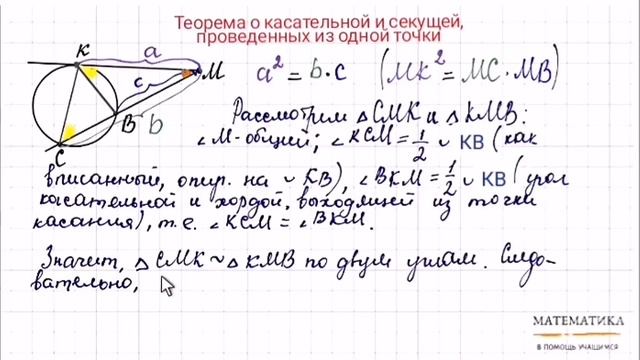 Теорема о касательной и секущей,
проведенных из одной точки
K a M
c
B b
C
a² = b·c (MK² = MC·MB)
Рассмотрим △CMK и △KMB:
∠M-общий; ∠KCM = 1/2 ∪ KB (как
вписанный, опир. на ∪ KB), ∠BKM = 1/2 ∪ KB (угол
касательной и хордой, выходящей из точки
касания), т.е. ∠KCM = ∠BKM.
Значит, △CMK ~ △KMB по двум углам. Следо-
вательно,
МАТЕМАТИКА
В ПОМОЩЬ УЧАЩИМСЯ